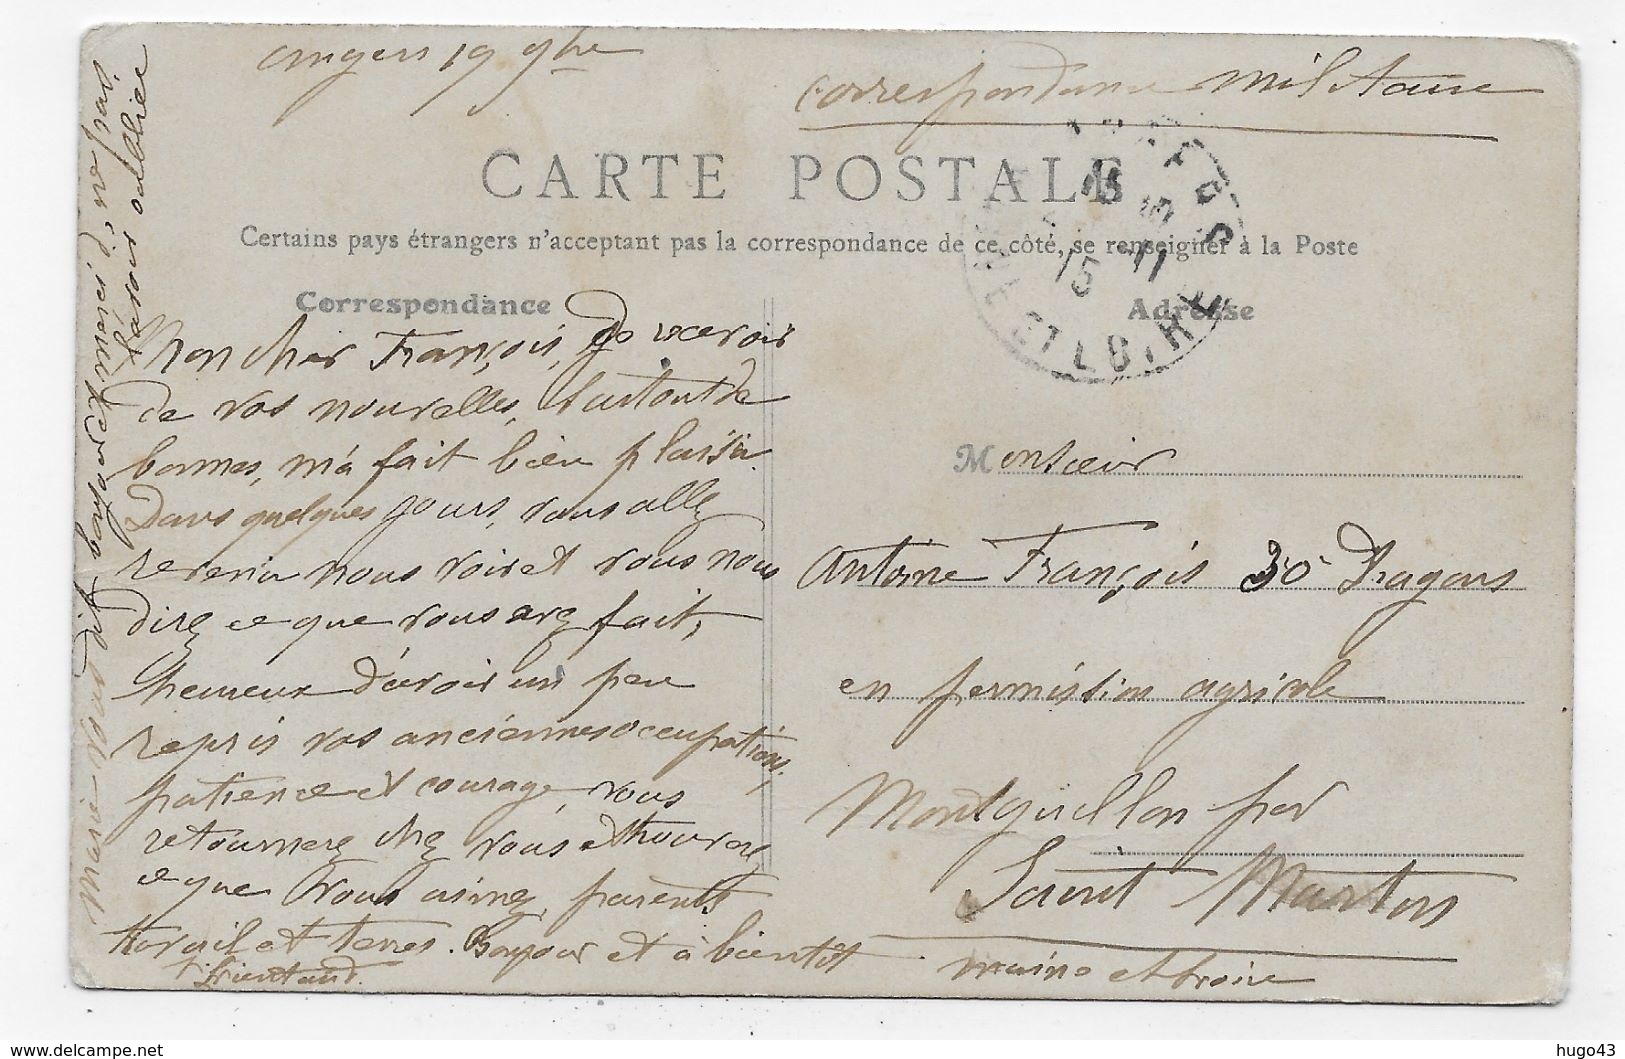 angers 19 9bre
correspondance militaire
CARTE POSTALE
Certains pays étrangers n'acceptant pas la correspondance de ce côté, se renseigner à la Poste
Correspondance
Adresse
Mon cher François, de recevoir
de vos nouvelles, surtout de
bonnes, m'a fait bien plaisir
Dans quelques jours, vous allez
revenir nous voir et vous nous
direz ce que vous avez fait,
heureux d'avoir un peu
repris vos anciennes occupations,
patience et courage, vous
retournerez chez vous et trouverez
ce que vous aimez, parents
travail et terres. Bonjour et à bientôt
Monsieur
Antoine François 30e Dragons
en permission agricole
Montguillon par
Saint Martin
maine et Loire
MAINE ET LOIRE
15 11
hugo43
www.delcampe.net